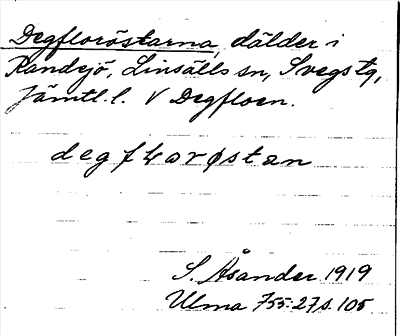 Degfloröstarna, dälder i
Randsjö, Linsälls sn, Svegs tg,
Jämtl. l. V Degfloen.
degfɫorøstan
S. Åsander 1919
Ulma 755:27 s. 105